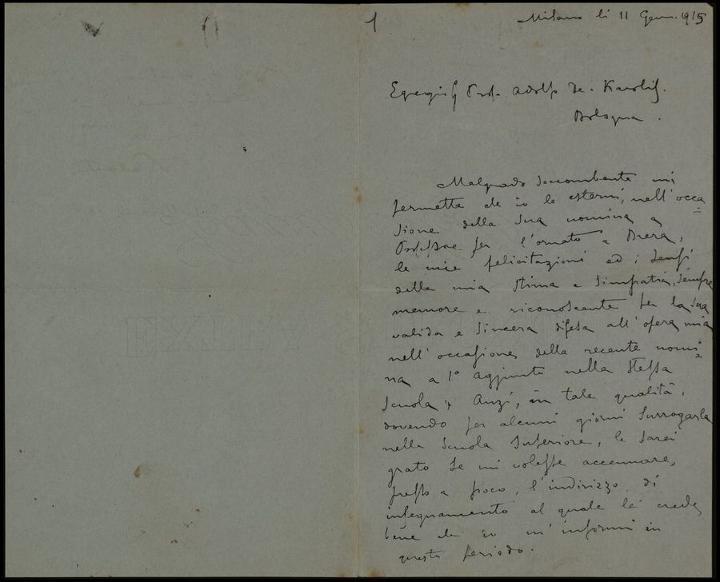 1
Milano li 11 Genn. 1915
Egregio Sig Prof. Adolfo De. Karolis.
Bologna.
Malgrado soccombente mi
permetta che io le esterni, nell'occa
sione della Sua nomina a
Professore per l'ornato a Brera,
le mie felicitazioni ed i sensi
della mia stima e simpatia, sempre
memore e riconoscente per la Sua
valida e sincera difesa all'opera mia
nell'occasione della recente nomi
na a 1º aggiunto nella stessa
Scuola. Anzi, in tale qualità,
dovendo per alcuni giorni surrogarla
nella Scuola Superiore, le sarei
grato se mi volesse accennare,
presso a poco, l'indirizzo di
insegnamento al quale le crede
bene che io m'informi in
questo periodo.